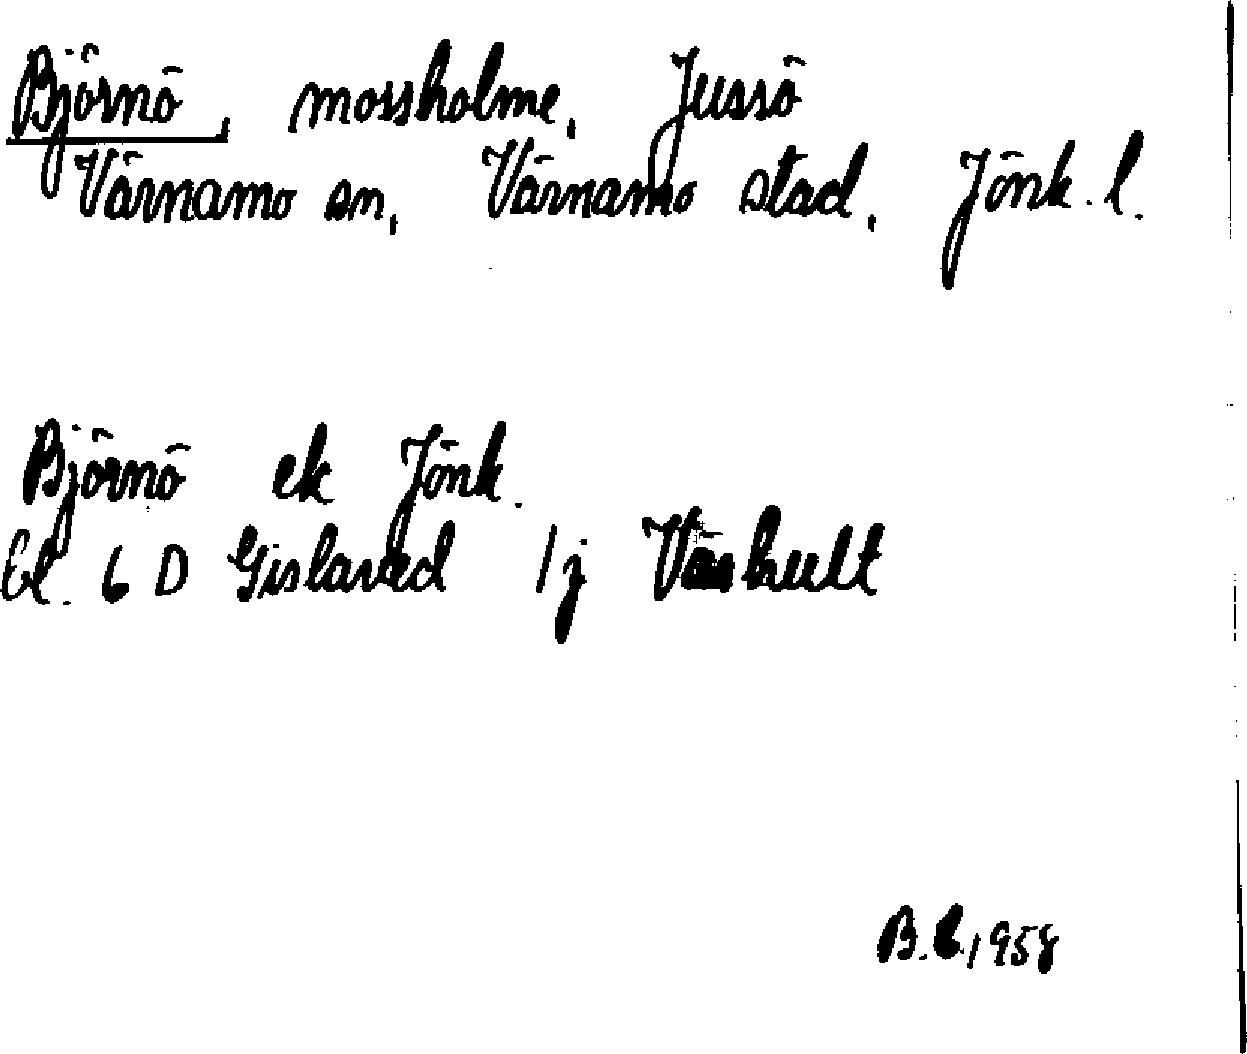 Björnö, mossholme, Jussö
Värnamo sn, Värnamo stad, Jönk. l.
Björnö ek Jönk.
Bl. 6 D Gislaved 1j
B. 1958